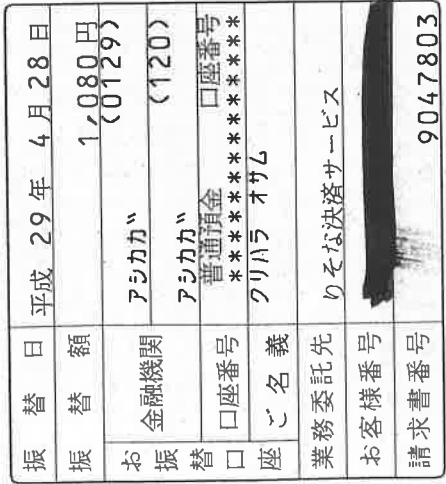 振替日 平成 29年 4月 28日
振替額 1,080円
お振替口座
金融機関 アシカガ (0129)
アシカガ (120)
口座番号 普通預金 口座番号
**************
ご名義 クリハラ オサム
業務委託先 りそな決済サービス
お客様番号
請求書番号 9047803